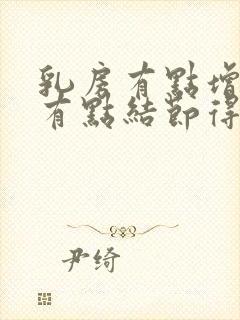 乳房有點增
有點結節得
尹绮